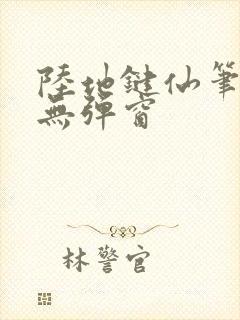 陸地鍵仙筆
無彈窗
林警官